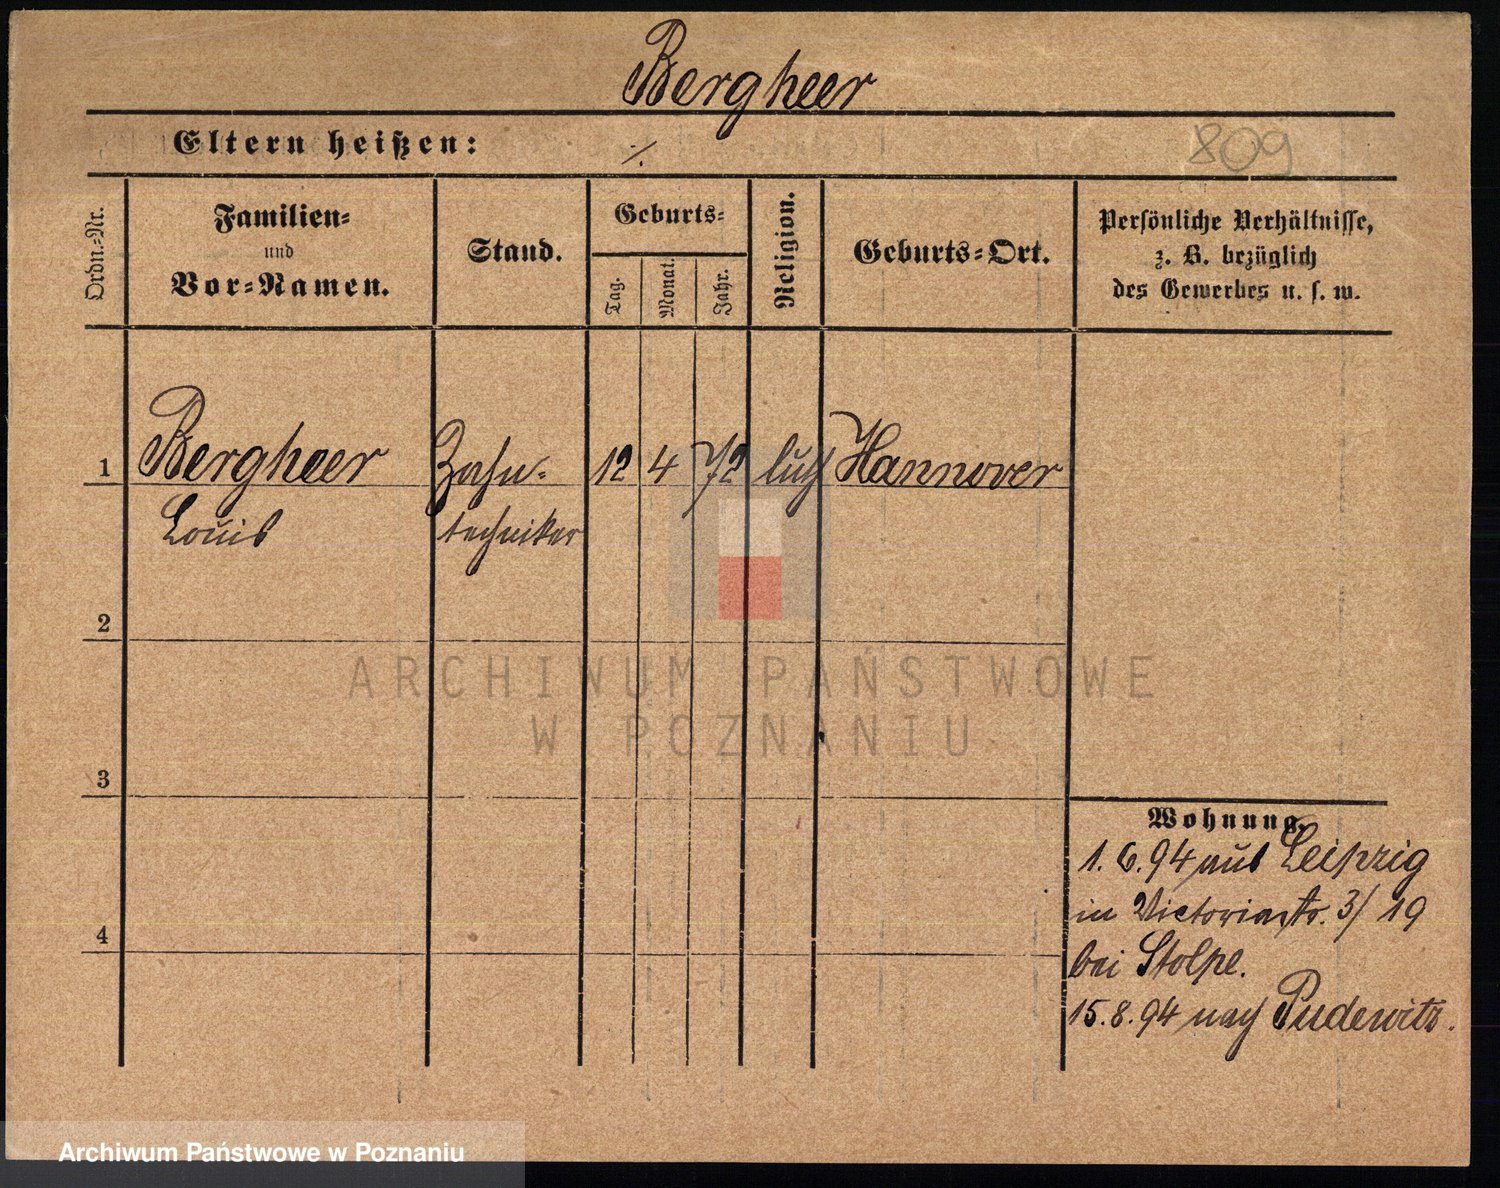 Bergheer
Eltern heißen: ·/.
809
Ordn.-Nr.
Familien-
und
Vor-Namen.
Stand.
Geburts-
Tag.
Monat.
Jahr.
Religion.
Geburts-Ort.
Persönliche Verhältnisse,
z. B. bezüglich
des Gewerbes u. s. w.
1 Bergheer Zahn- 12 4 72 luth Hannover
Louis techniker
2
3
4
Wohnung.
1. 6. 94 aus Leipzig
in Victoriastr. 3/19
bei Stolpe.
15. 8. 94 nach Pudewitz.
ARCHIWUM PAŃSTWOWE
W POZNANIU
Archiwum Państwowe w Poznaniu